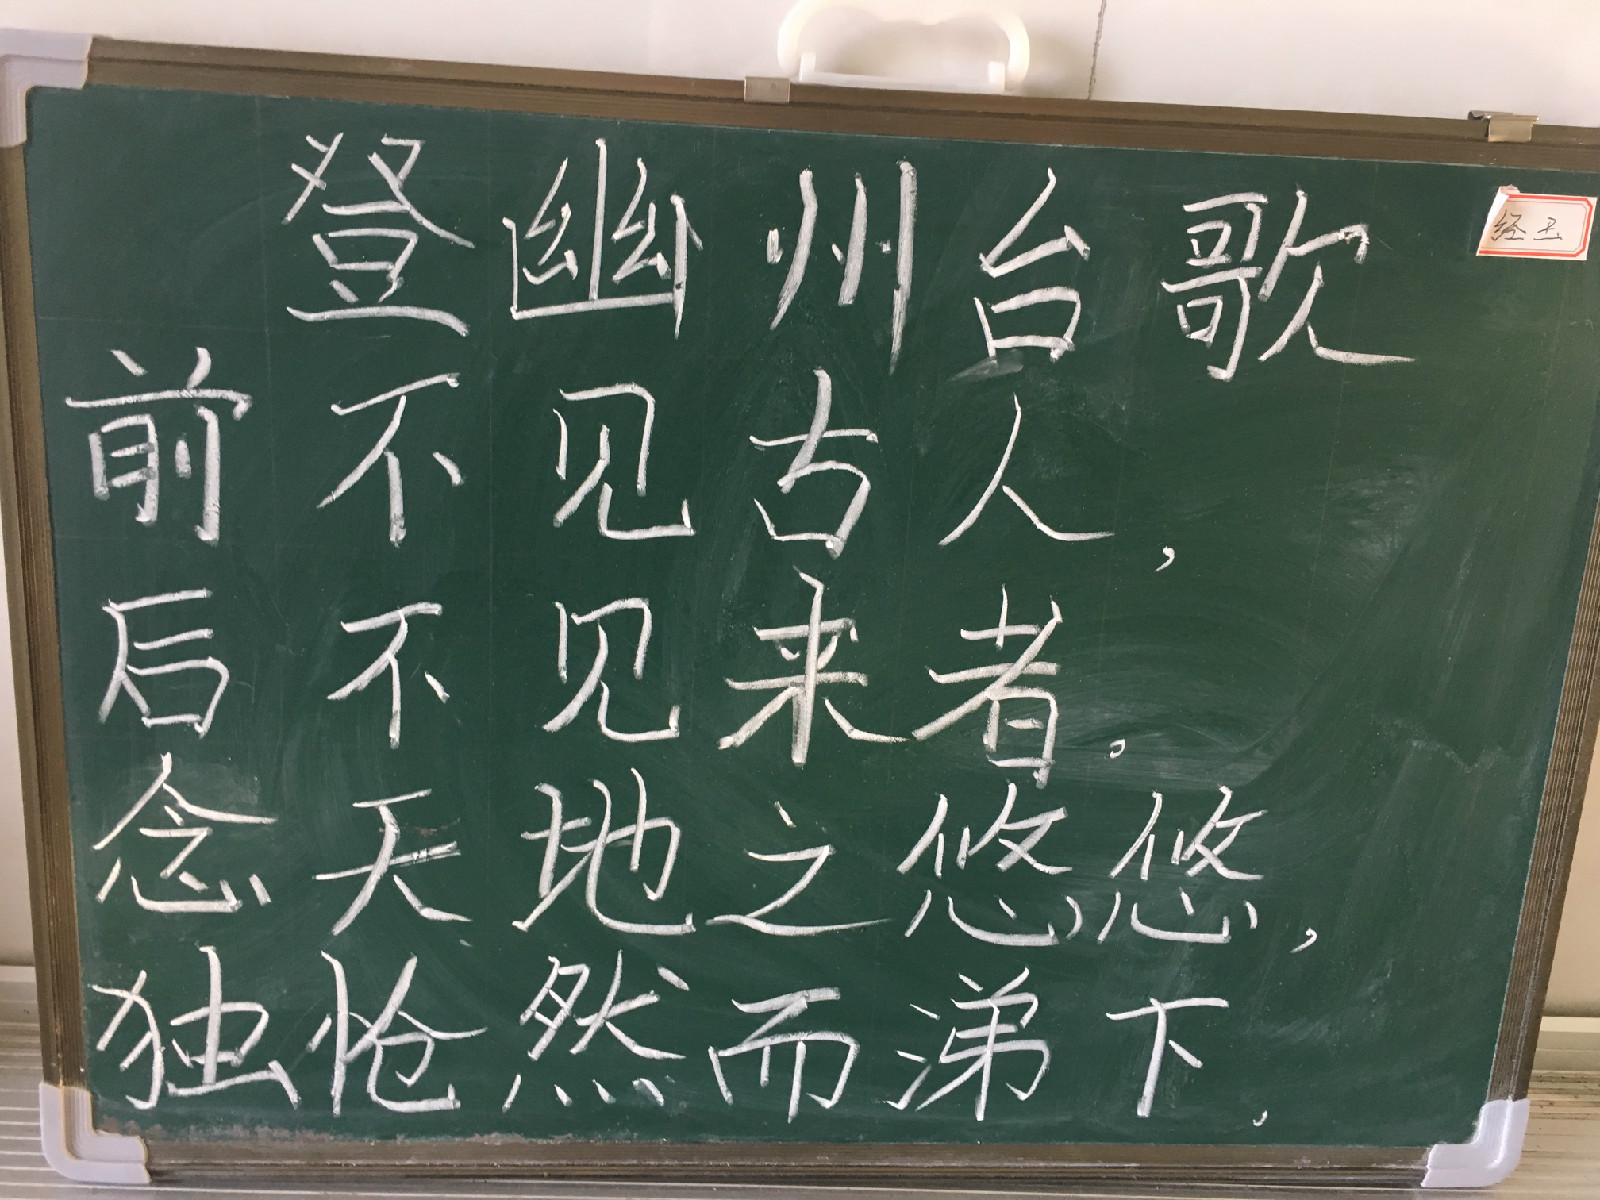 登幽州台歌
前不见古人，
后不见来者。
念天地之悠悠，
独怆然而涕下.